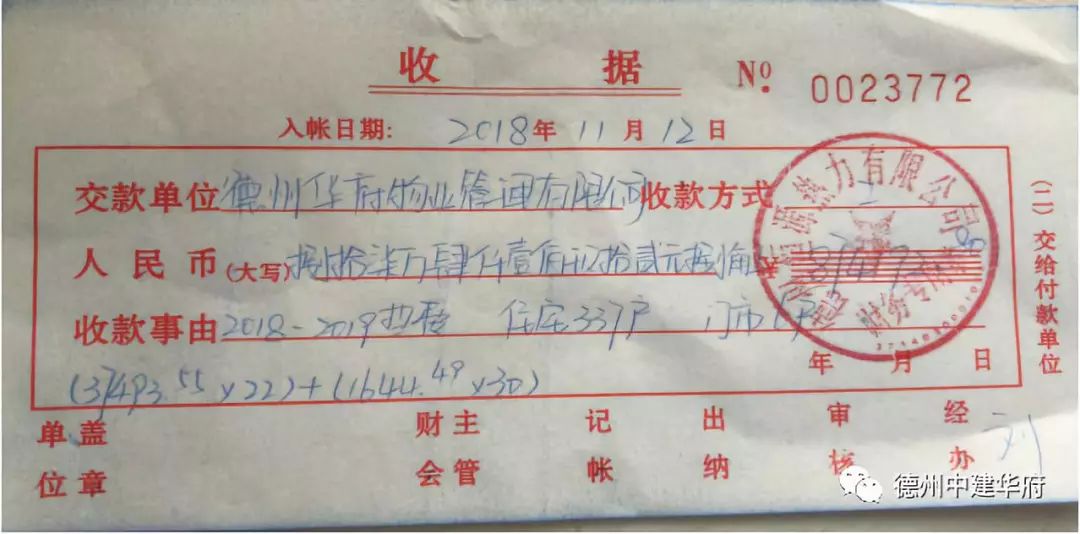 收 据 Nº 0023772
入帐日期: 2018年 11 月 12 日
交款单位 德州华府物业管理有限公司 收款方式
人民币(大写) 捌拾柒万肆仟壹佰玖拾贰元捌角 874192.80
收款事由 2018-2019热费 住宅337户 门市
年 月 日
(37493.55 x22)+(1644.49 x30)
(二)交给付款单位
源热力有限公司
财务专用章
单位 盖章 财会 主管 记帐 出纳 审核 经办 刘
德州中建华府